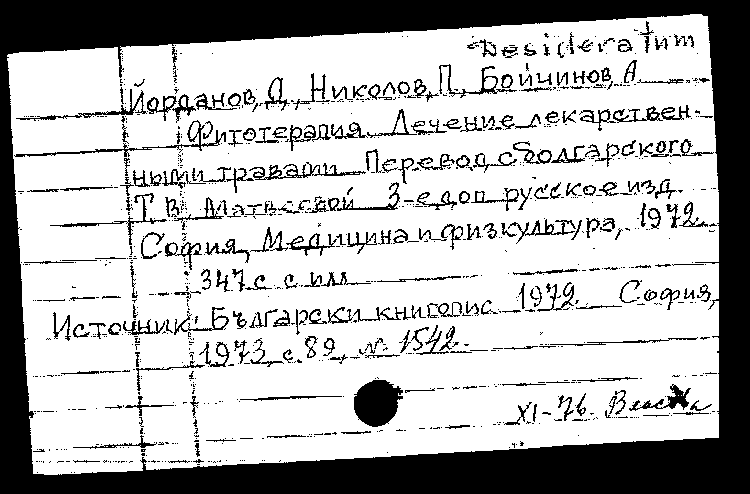 Desideratum
Йорданов, Д., Николов, П., Бойчинов, А.
Фитотерапия. Лечение лекарствен-
ными травами. Перевод с болгарского
Т. В. Матвеевой 3-е доп русское изд.
София, Медицина и физкультура, 1972.
347 с с илл
Источник: Български книгопис 1972. София,
1973, с. 89, № 1542.
XI-76.